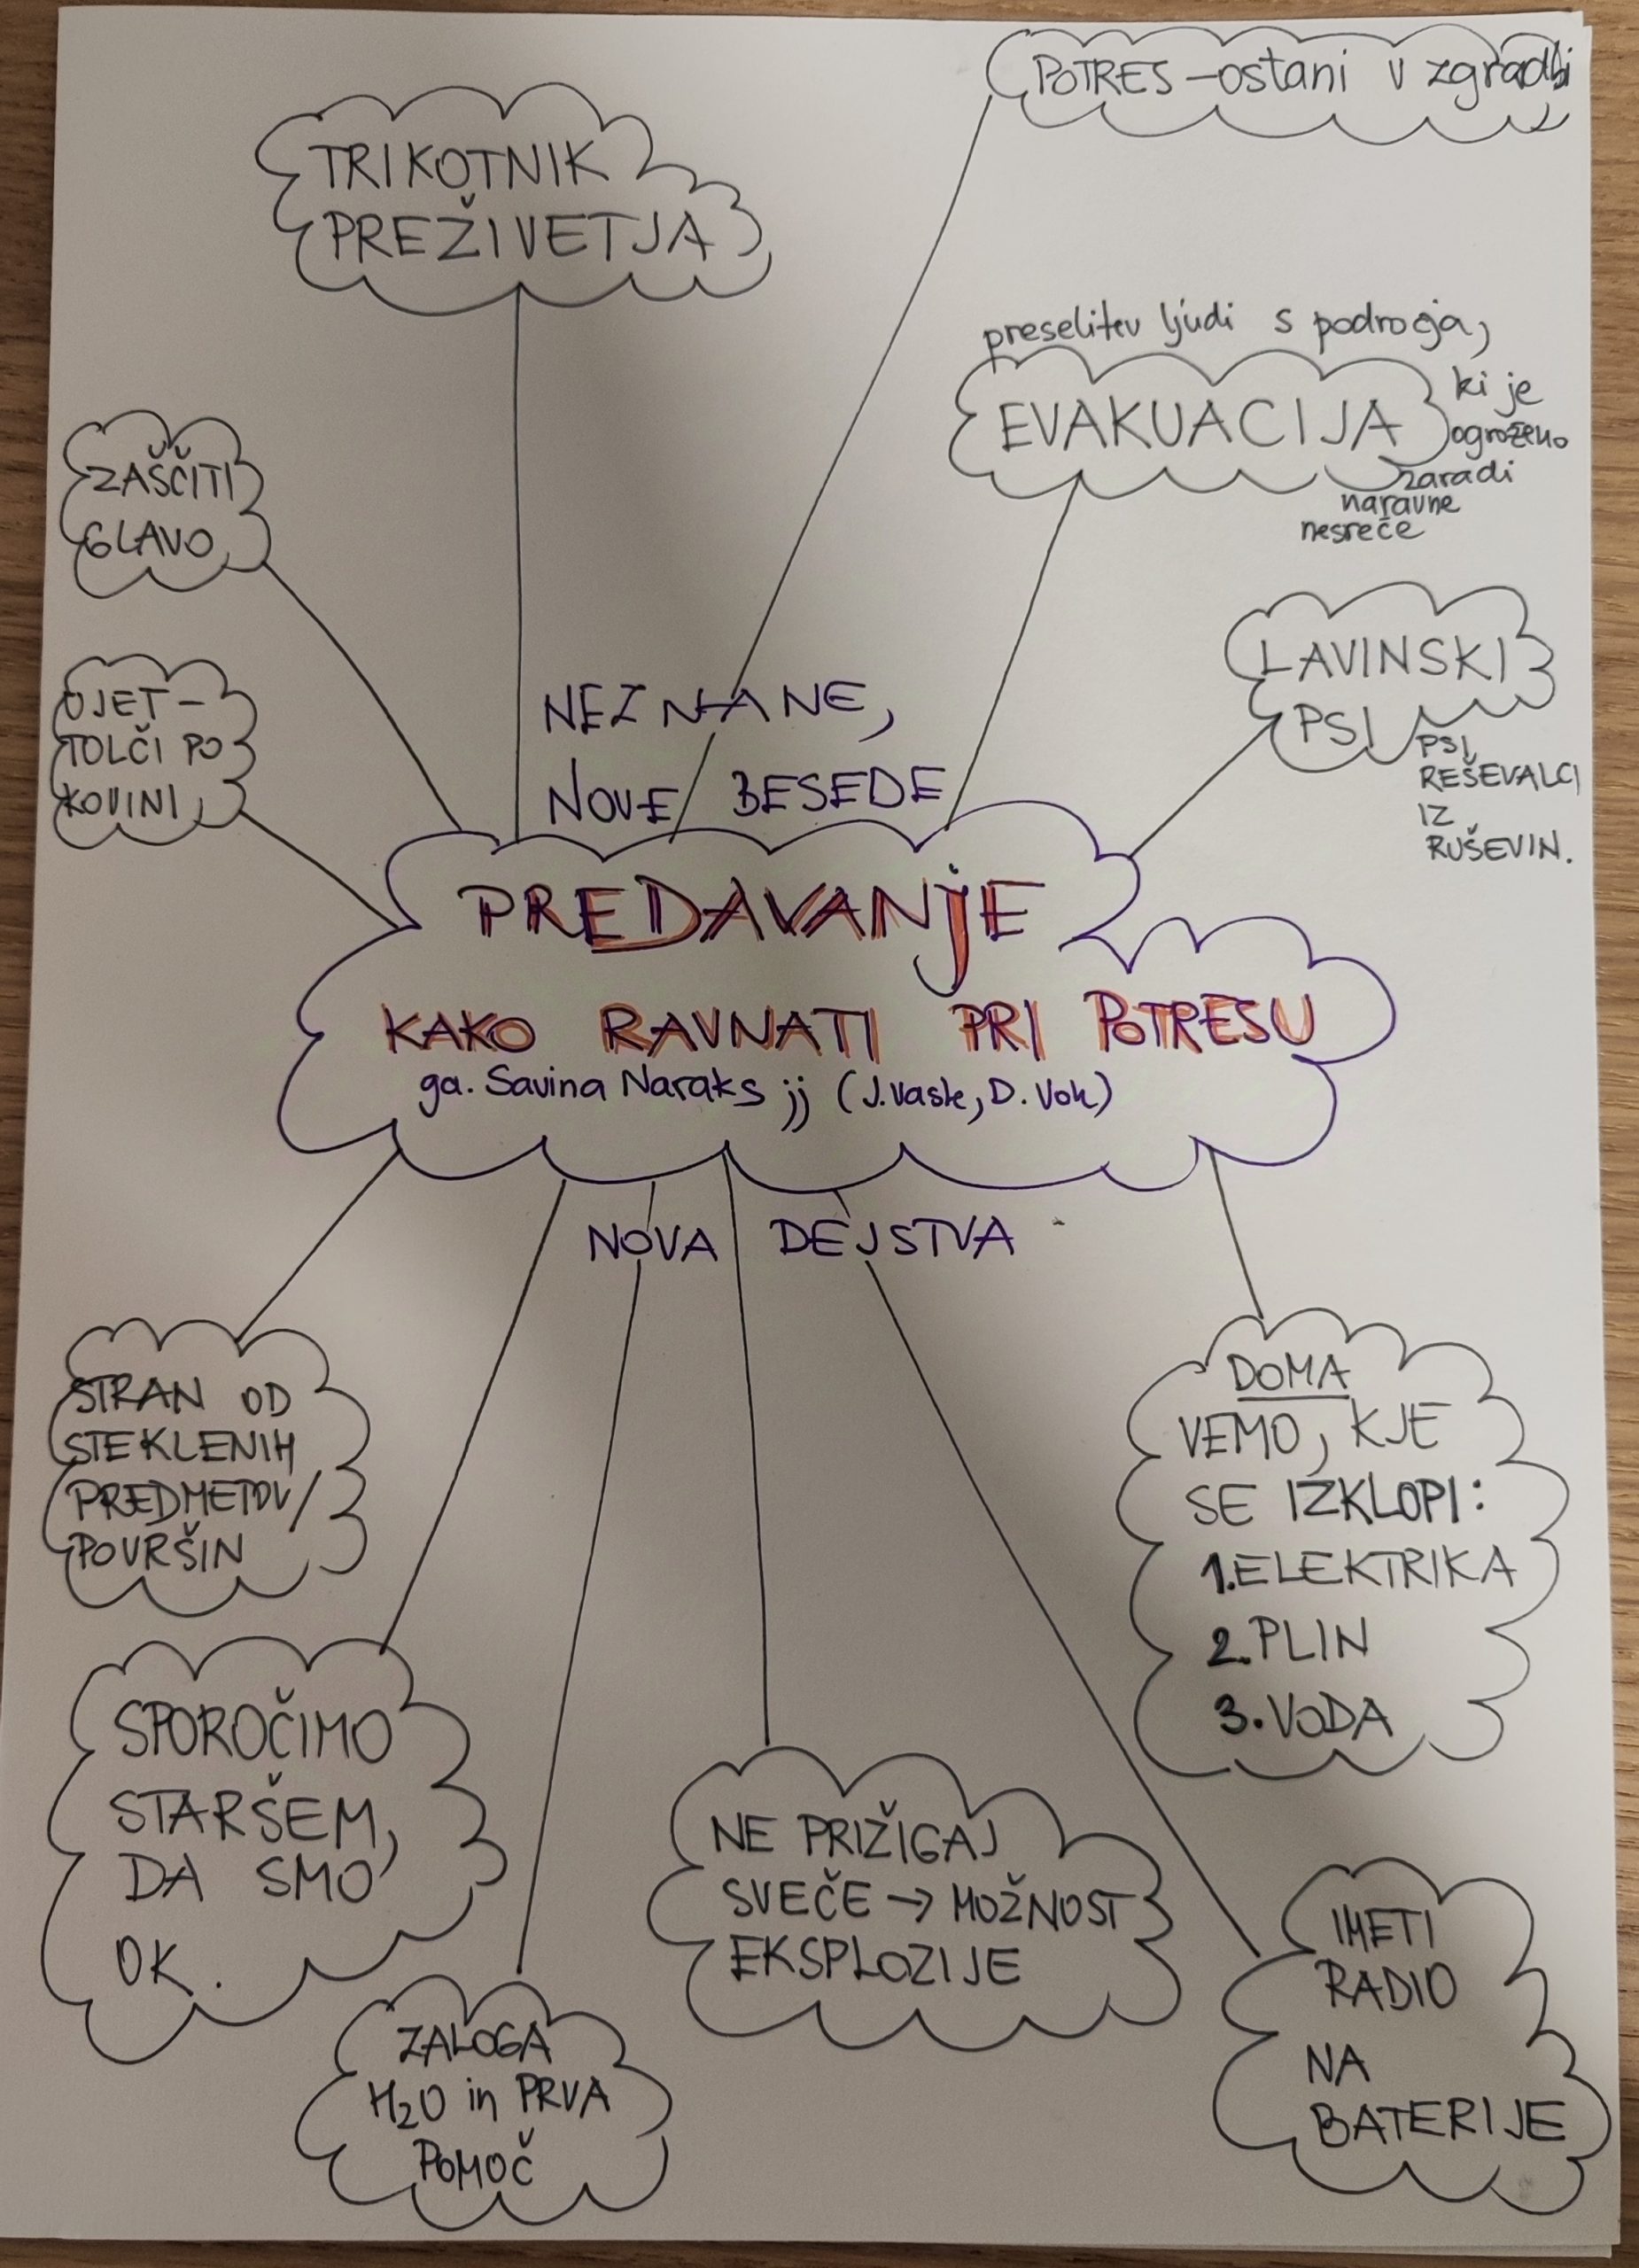 POTRES – ostani v zgradbi
TRIKOTNIK
PREŽIVETJA
preselitev ljudi s področja,
EVAKUACIJA
ki je
ogroženo
zaradi
naravne
nesreče
ZAŠČITI
GLAVO
UJET –
TOLČI PO
KOVINI
LAVINSKI
PSI
PSI
REŠEVALCI
IZ
RUŠEVIN.
NEZNANE,
NOVE BESEDE
PREDAVANjE
KAKO RAVNATI PRI POTRESU
ga. Savina Naraks jj (J. Vasle, D. Voh)
NOVA DEJSTVA
STRAN OD
STEKLENIH
PREDMETOV/
POVRŠIN
DOMA
VEMO, KJE
SE IZKLOPI:
1. ELEKTRIKA
2. PLIN
3. VODA
SPOROČIMO
STARŠEM,
DA SMO
OK.
NE PRIŽIGAJ
SVEČE → MOŽNOST
EKSPLOZIJE
IMETI
RADIO
NA
BATERIJE
ZALOGA
H₂O in PRVA
POMOČ